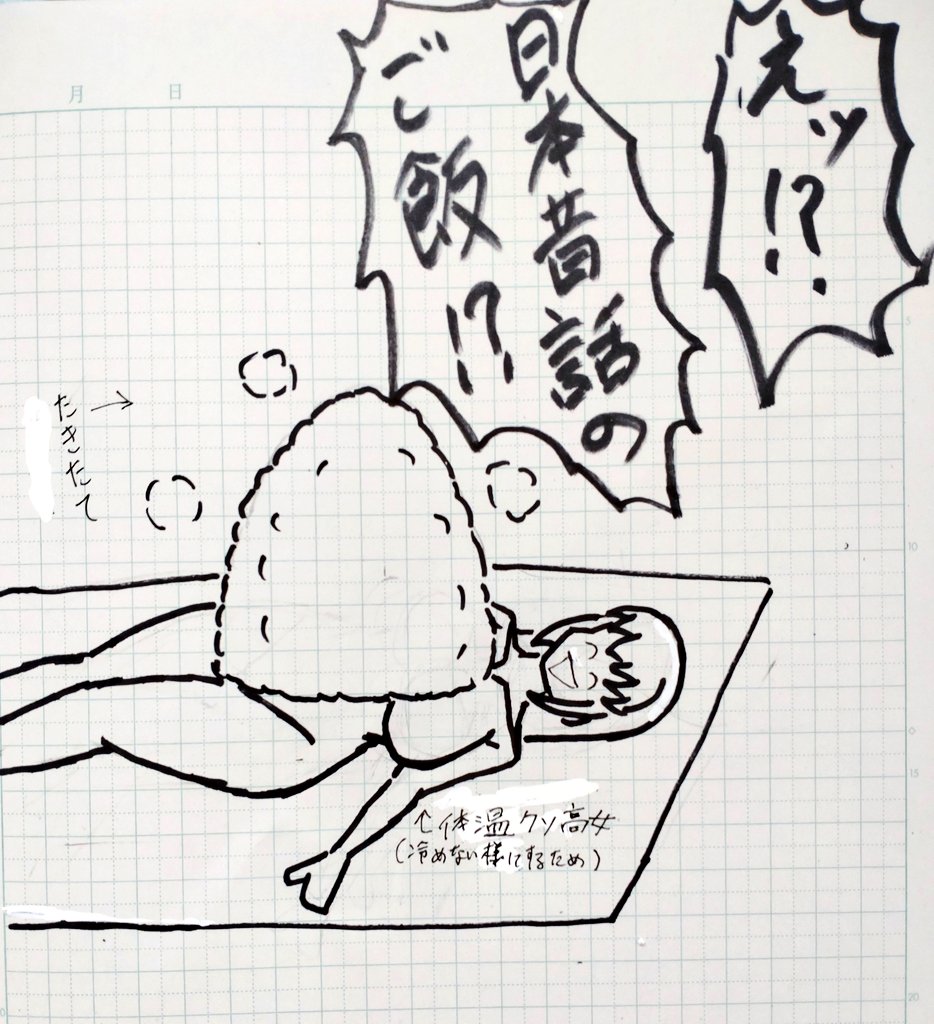 えッ!?
日本昔話の
ご飯!?
たきたて→
↑体温クソ高女
(冷めない様にするため)
月 日
5
10
0
15
20